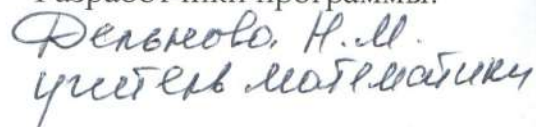 Разработчики программы:
Дельнова. Н.М.
учитель математики